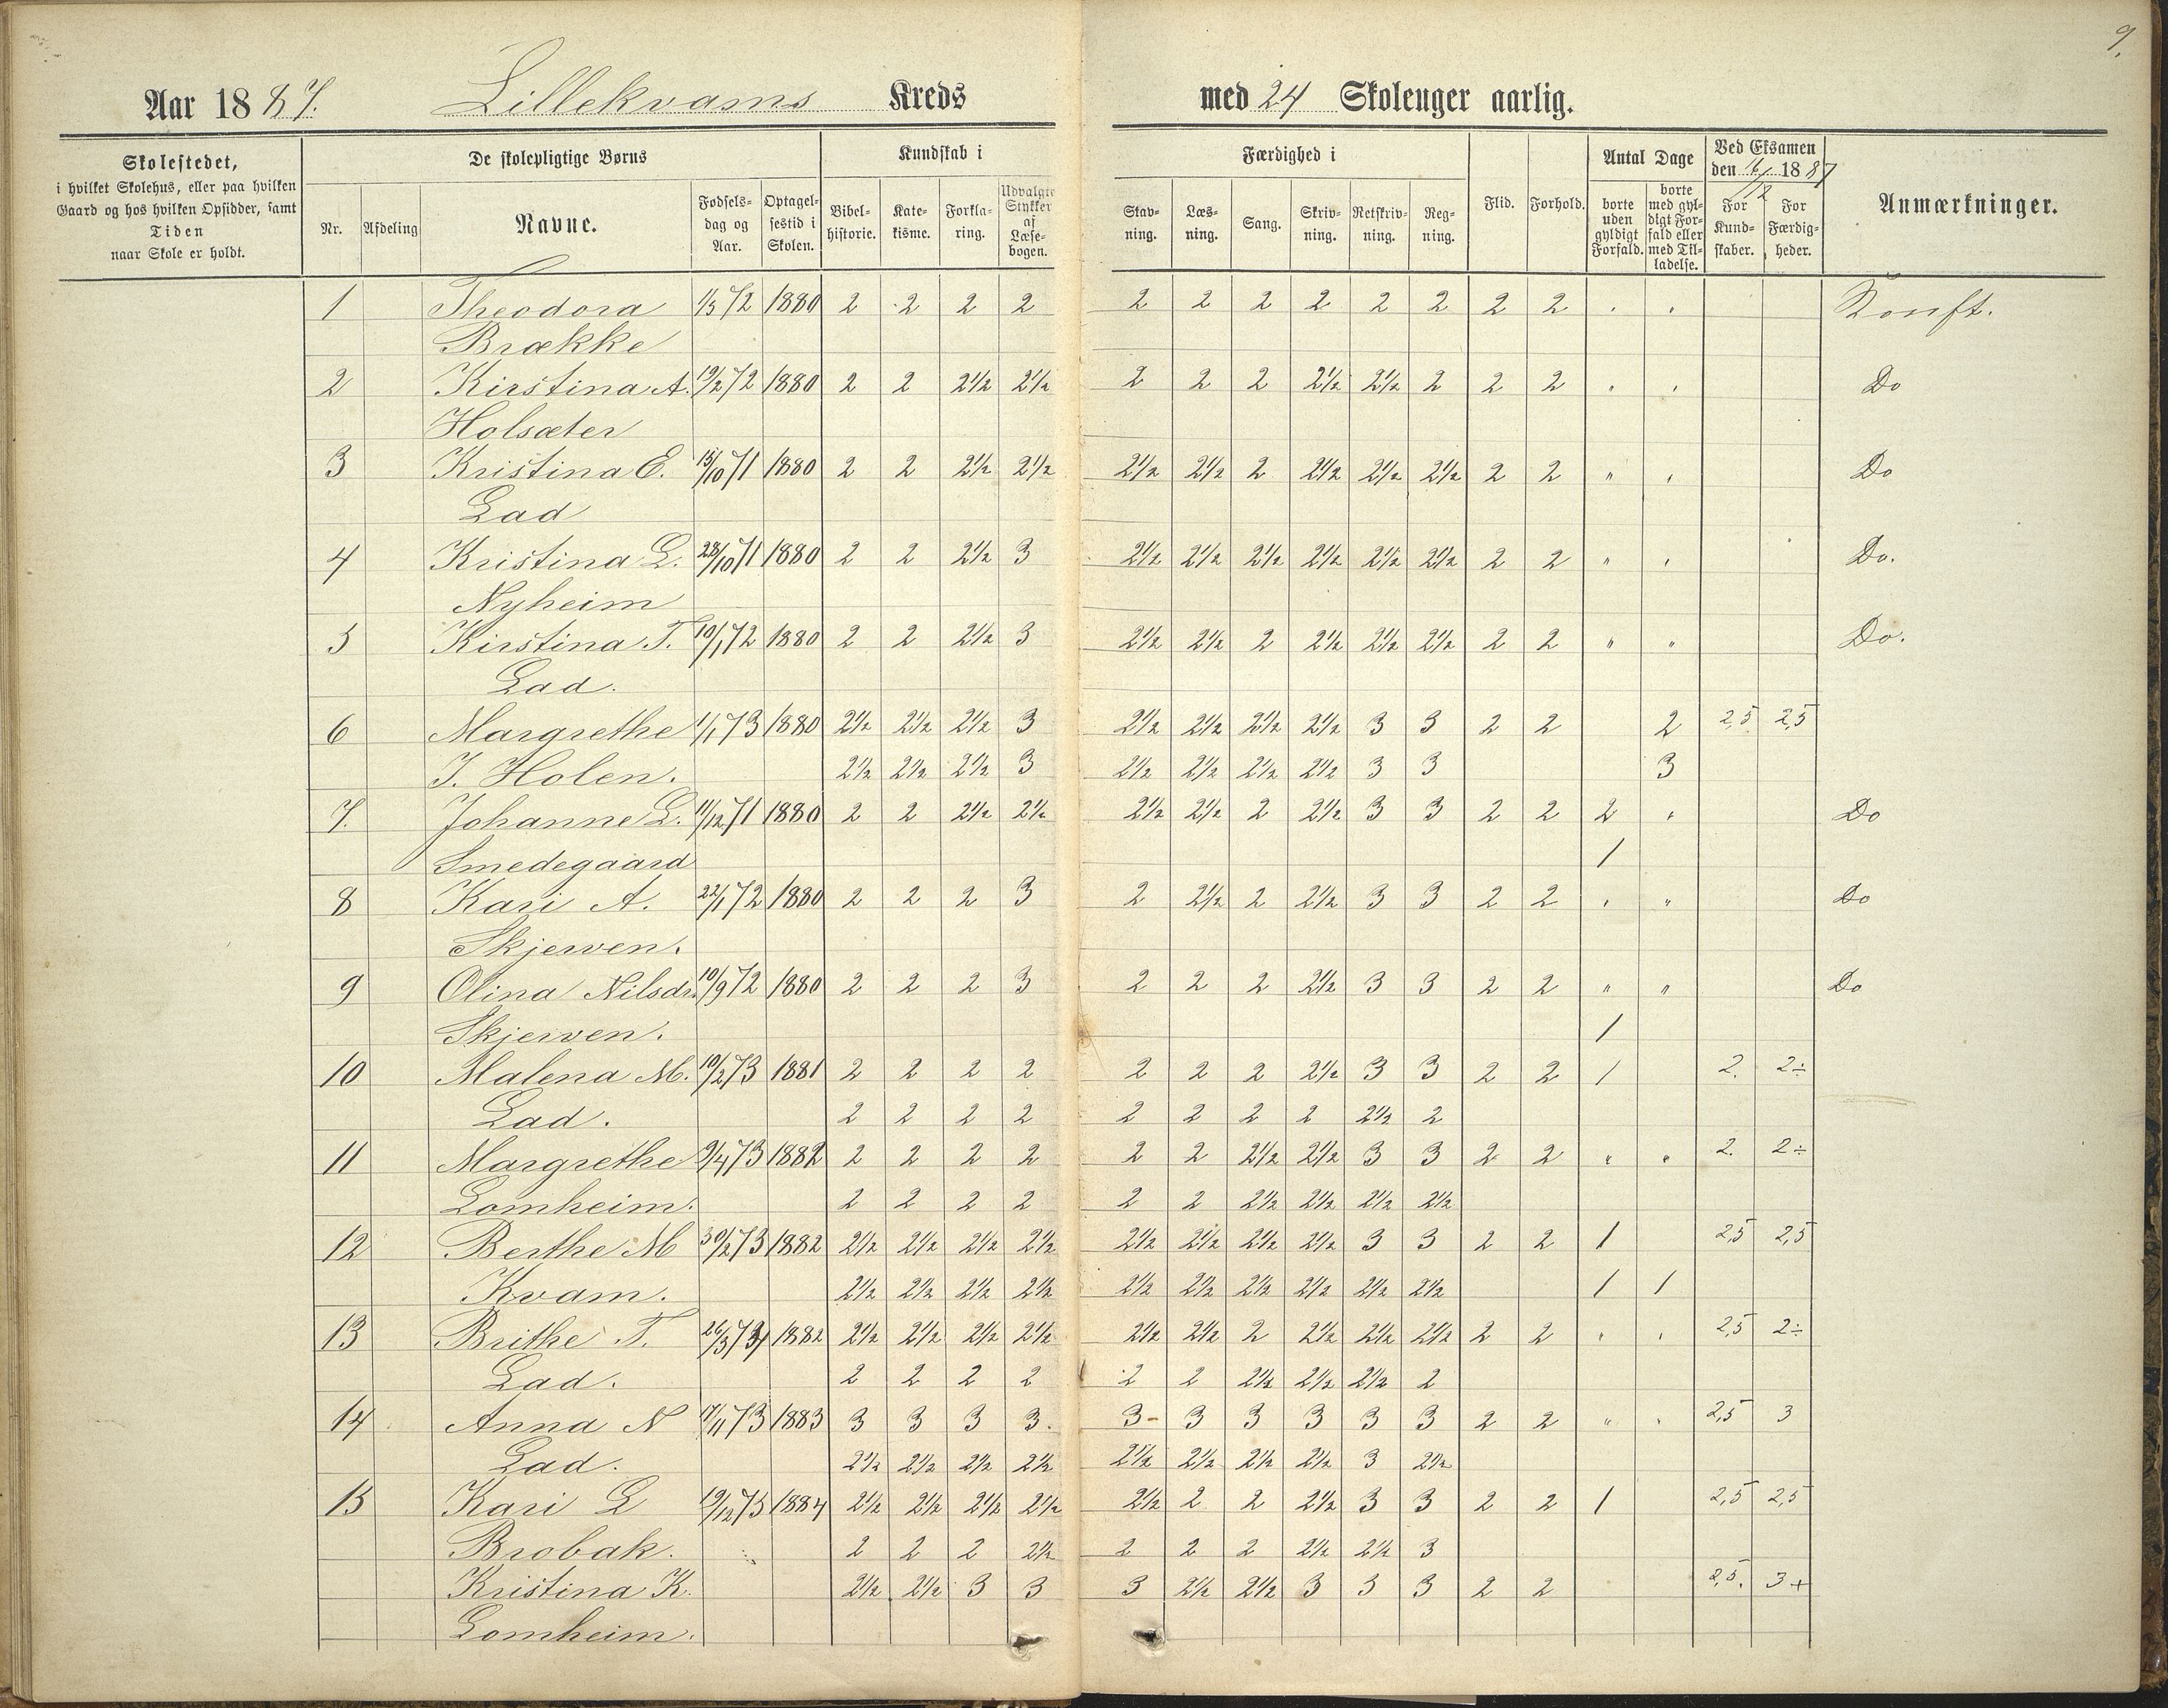 9.
Aar 1887. Lillekvams Kreds med 24 Skoleuger aarlig.
Skolestedet,
i hvilket Skolehus, eller paa hvilken
Gaard og hos hvilken Opsidder, samt
Tiden
naar Skole er holdt.
De skolepligtige Børns
Nr. Afdeling Navne. Fødselsdag og Aar. Optagelsestid i Skolen.
Kundskab i
Bibelhistorie. Katekisme. Forklaring. Udvalgte Stykker af Læsebogen.
Færdighed i
Stavning. Læsning. Sang. Skrivning. Retskrivning. Regning.
Flid. Forhold.
Antal Dage
borte uden gyldigt Forfald. borte med gyldigt Forfald eller med Tilladelse.
Ved Eksamen den 16/12 1887
For Kundskaber. For Færdigheder.
Anmærkninger.
1 Theodora 1/5 72 1880 2 2 2 2 2 2 2 2 2 2 2 2 . . Konft.
Brække
2 Kirstina A. 19/2 72 1880 2 2 2½ 2½ 2 2 2 2½ 2½ 2 2 2 . . Do
Holsæter
3 Kristina E. 15/10 71 1880 2 2 2½ 2½ 2½ 2½ 2 2½ 2½ 2½ 2 2 " . Do
Lad
4 Kristina L. 28/10 71 1880 2 2 2½ 3 2½ 2½ 2½ 2½ 2½ 2½ 2 2 " . Do.
Nyheim
5 Kirstina T. 10/1 72 1880 2 2 2½ 3 2½ 2½ 2 2½ 2½ 2½ 2 2 " " Do.
Lad.
6 Margrethe 1/1 73 1880 2½ 2½ 2½ 3 2½ 2½ 2½ 2½ 3 3 2 2 2 2,5 2,5
J. Holen. 2½ 2½ 2½ 3 2½ 2½ 2½ 2½ 3 3 3
7. Johanne L. 11/12 71 1880 2 2 2½ 2½ 2½ 2½ 2 2½ 3 3 2 2 2 . Do
Smedegaard 1
8 Kari A. 22/1 72 1880 2 2 2 3 2 2½ 2 2½ 3 3 2 2 . " Do
Skjerven.
9 Olina Nilsdr. 10/9 72 1880 2 2 2 3 2 2 2 2½ 3 3 2 2 " " Do
Skjerven. 1
10 Malena M. 10/2 73 1881 2 2 2 2 2 2 2 2½ 3 3 2 2 1 2. 2÷
Lad. 2 2 2 2 2 2 2 2 2½ 2
11 Margrethe 9/4 73 1882 2 2 2 2 2 2 2½ 2½ 3 3 2 2 " " 2. 2÷
Lomheim. 2 2 2 2 2 2 2½ 2½ 2½ 2½
12 Berthe M 30/2 73 1882 2½ 2½ 2½ 2½ 2½ 2½ 2½ 2½ 3 3 2 2 1 2,5 2,5
Kvam. 2½ 2½ 2½ 2½ 2½ 2½ 2½ 2½ 2½ 2½ 1 1
13 Brithe T. 26/3 74 1882 2½ 2½ 2½ 2½ 2½ 2½ 2 2½ 2½ 2½ 2 2 . . 2,5 2÷
Lad. 2 2 2 2 2 2 2½ 2½ 2½ 2
14 Anna N 17/11 73 1883 3 3 3 3. 3- 3 3 3 3 3 2 2 " . 2,5 3
Lad. 2½ 2½ 2½ 2½ 2½ 2½ 2½ 2½ 3 2½
15 Kari L 19/12 75 1884 2½ 2½ 2½ 2½ 2½ 2 2 2½ 3 3 2 2 1 2,5 2,5
Brobak. 2 2 2 2½ 2 2 2 2½ 2½ 3
Kristina K. 2½ 2½ 3 3 3 2½ 2½ 3 3 3 2 2 2,5. 3+
Lomheim.